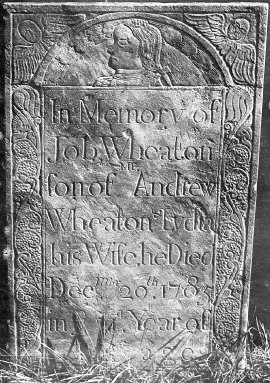 In Memory of
Job Wheaton
son of Andrew
Wheaton & Lydia
his Wife, he Died
Decmr 29th, 1785
in Year of